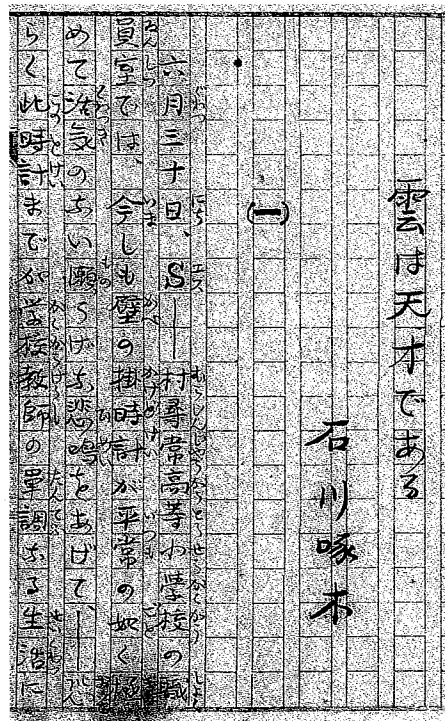 雲は天才である
石川啄木
(一)
六月三十日、S――村尋常高等小學校の職
員室では、今しも壁の掛時計が平常の如く極
めて活気のない懶うげな悲鳴をあげて、――
らく此時計までが学校教師の單調なる生活に